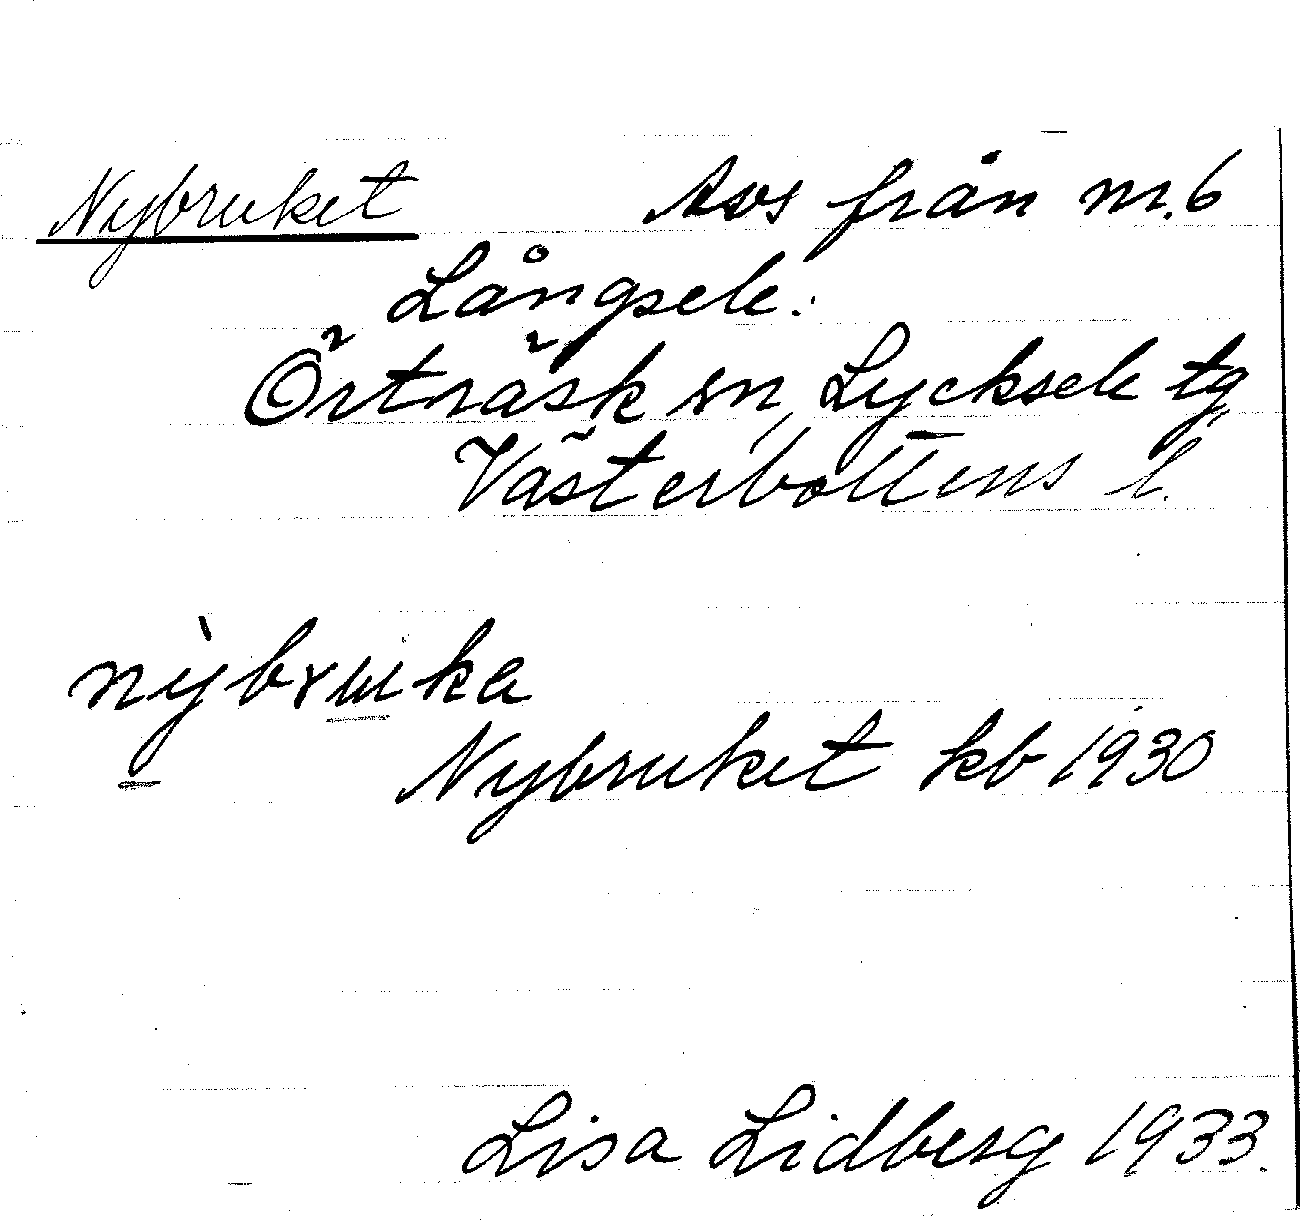 Nybruket Avs från nr.6
Långsele.
Örträsk sn, Lycksele tg
Västerbottens l.
nỳbrɯka
Nybruket kb 1930
Lisa Lidberg 1933.